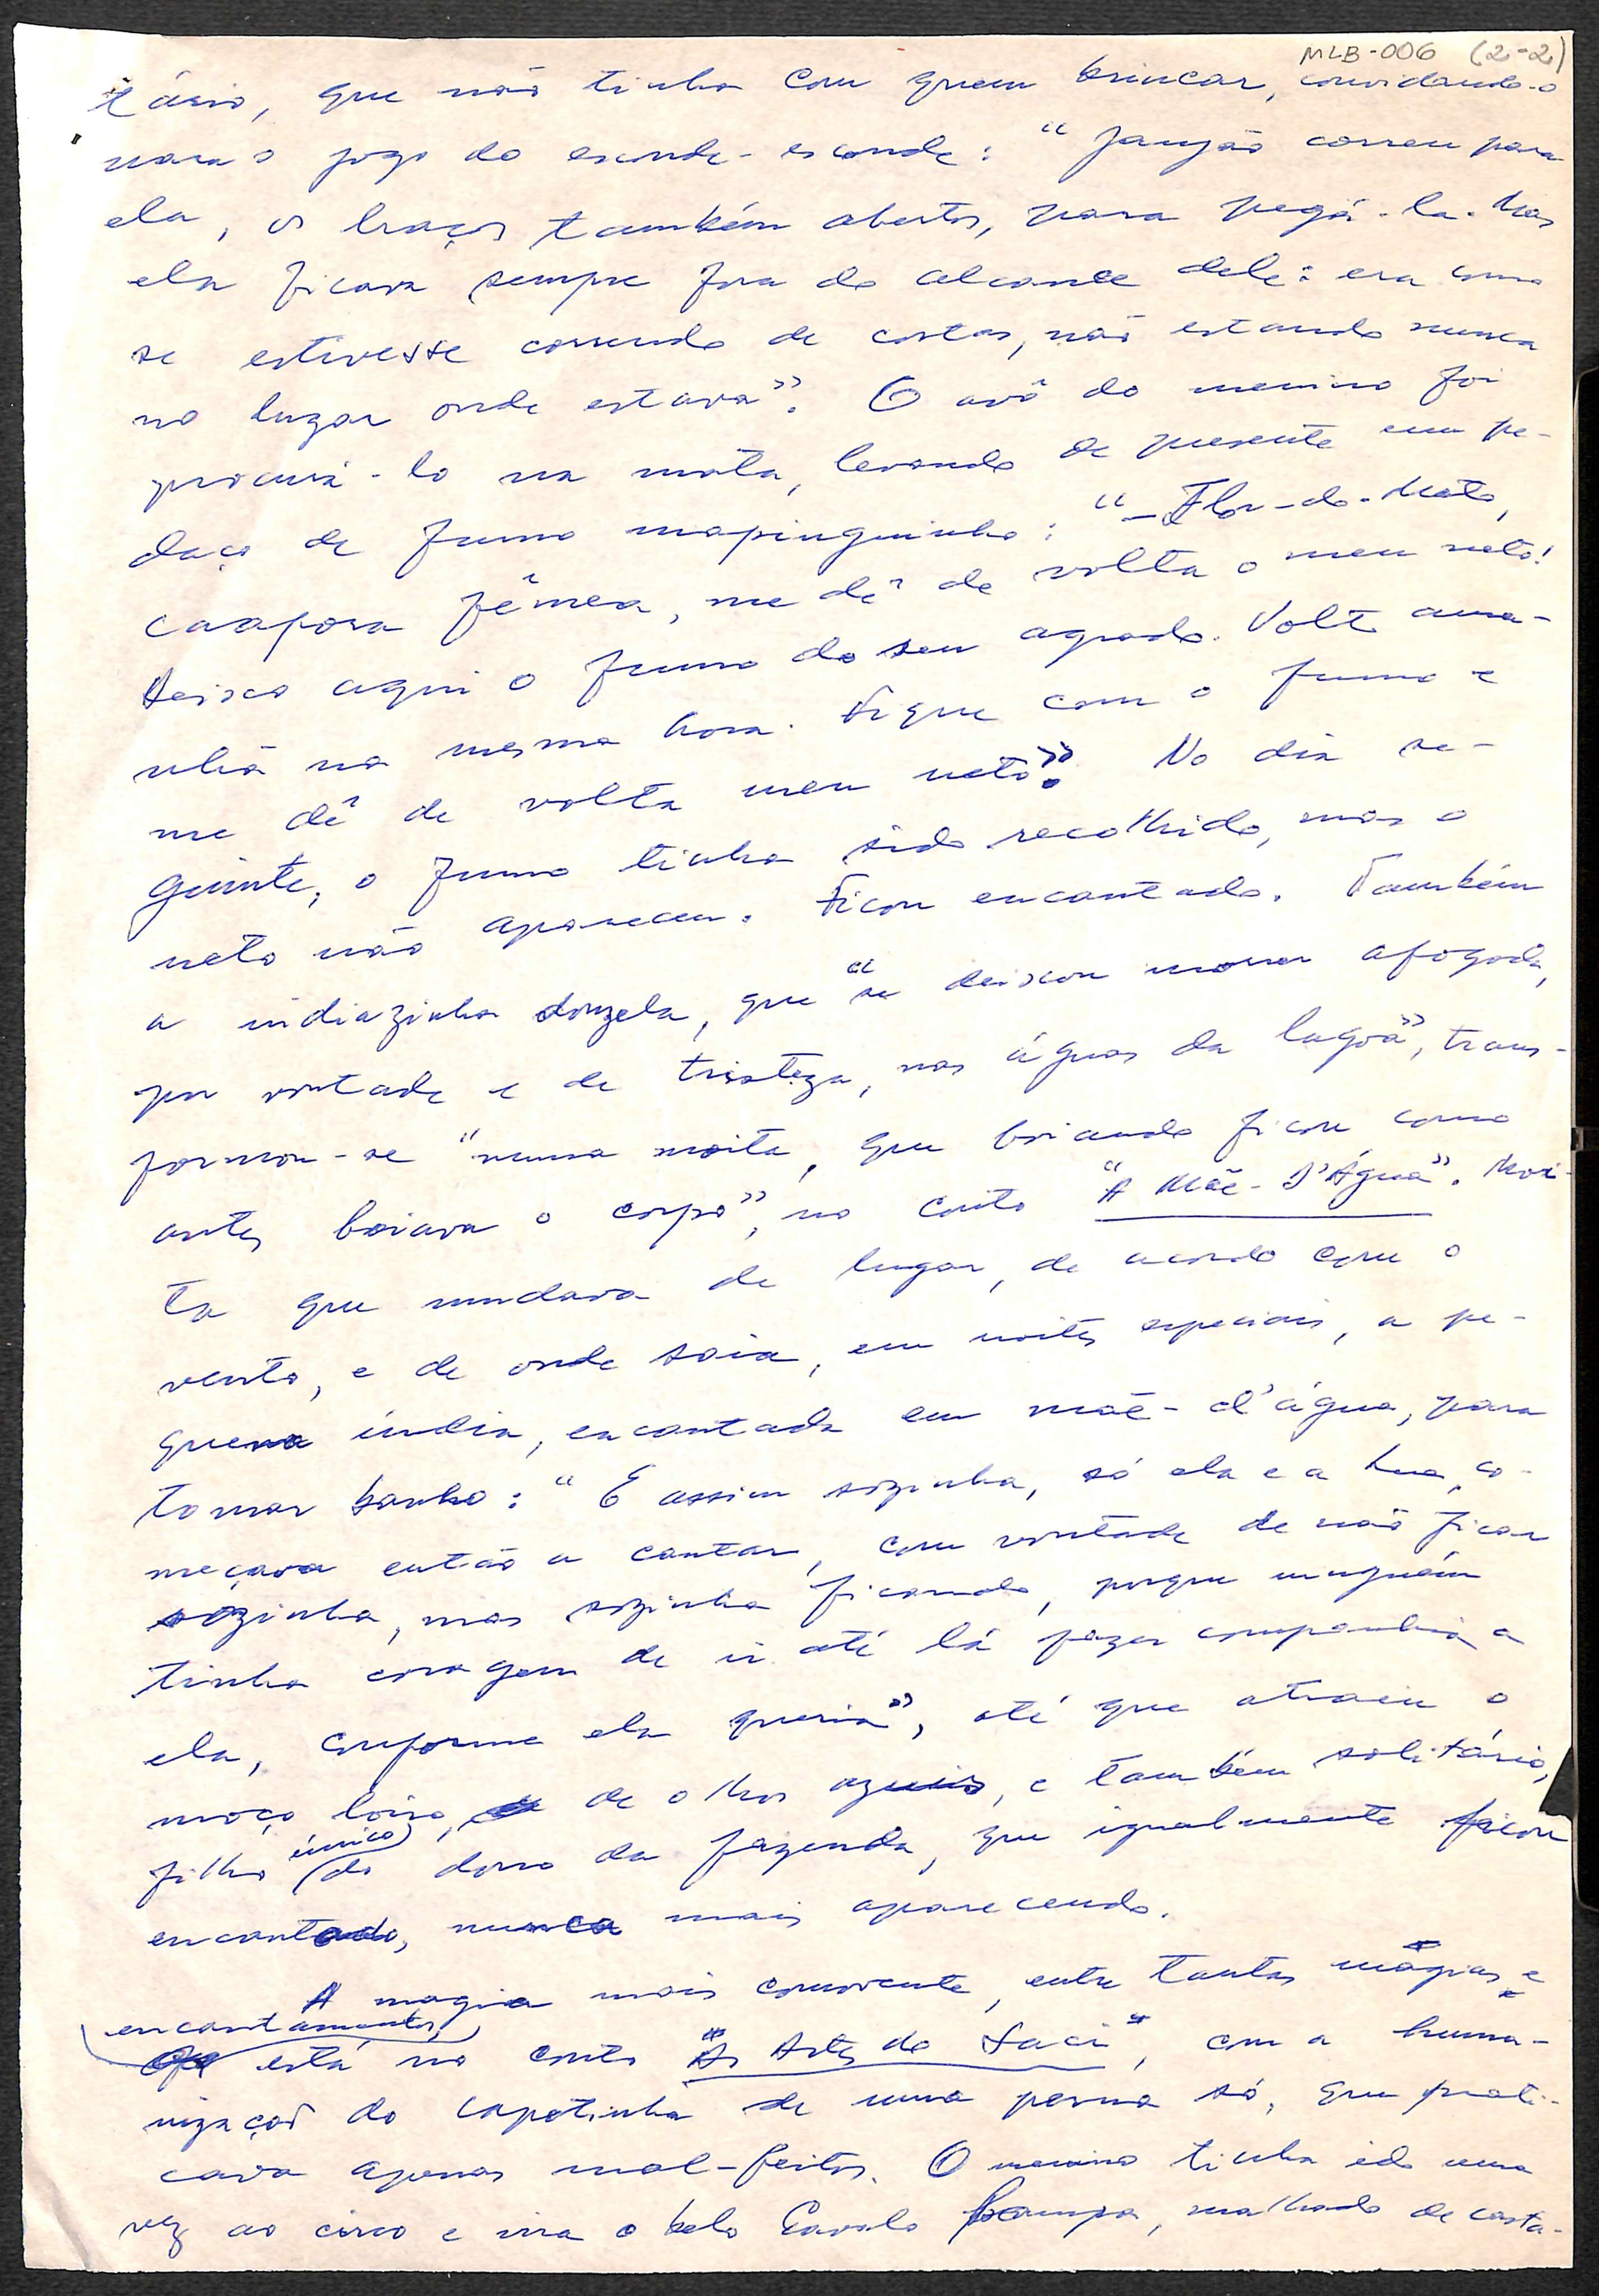 MLB-006 (2-2)
tário, que não tinha com quem brincar, convidando-o
para o jogo do esconde-esconde: "Janjão correu para
ela, os braços também abertos, para pegá-la. Mas
ela ficava sempre fora do alcance dele: era como
se estivesse correndo de costas, não estando nunca
no lugar onde estava". O avô do menino foi
procurá-lo na mata, levando de presente um pe-
daço de fumo mapinguinho: "– Flor-do-Mato,
caapora fêmea, me dê de volta o meu neto!
Deixo aqui o fumo do seu agrado. Volto ama-
nhã na mesma hora. Fique com o fumo e
me dê de volta meu neto". No dia se-
guinte, o fumo tinha sido recolhido, mas o
neto não apareceu. Ficou encantado. Também
a indiazinha donzela, que "se deixou morrer afogada,
por vontade e de tristeza, nas águas da lagoa", trans-
formou-se "numa moita, que boiando ficou como
antes boiava o corpo", no conto "A Mãe-D'Água". Moi-
ta que mudava de lugar, de acordo com o
vento, e de onde saía, em noites especiais, a pe-
quena índia, encantada em mãe-d'água, para
tomar banho: "E assim sozinha, só ela e a lua, co-
meçava então a cantar, com vontade de não ficar
sozinha, mas sozinha ficando, porque ninguém
tinha coragem de ir até lá fazer companhia a
ela, conforme ela queria", até que atraiu o
moço loiro, de olhos azuis, e também solitário,
filho único do dono da fazenda, que igualmente ficou
encantado, nunca mais aparecendo.
A magia mais comovente, entre tantas mágias e
encantamentos,
está no conto "As Artes do Saci", com a huma-
nização do capetinha de uma perna só, que prati-
cava apenas mal-feitos. O menino tinha ido uma
vez ao circo e vira o belo Cavalo Pampa, malhado de casta-